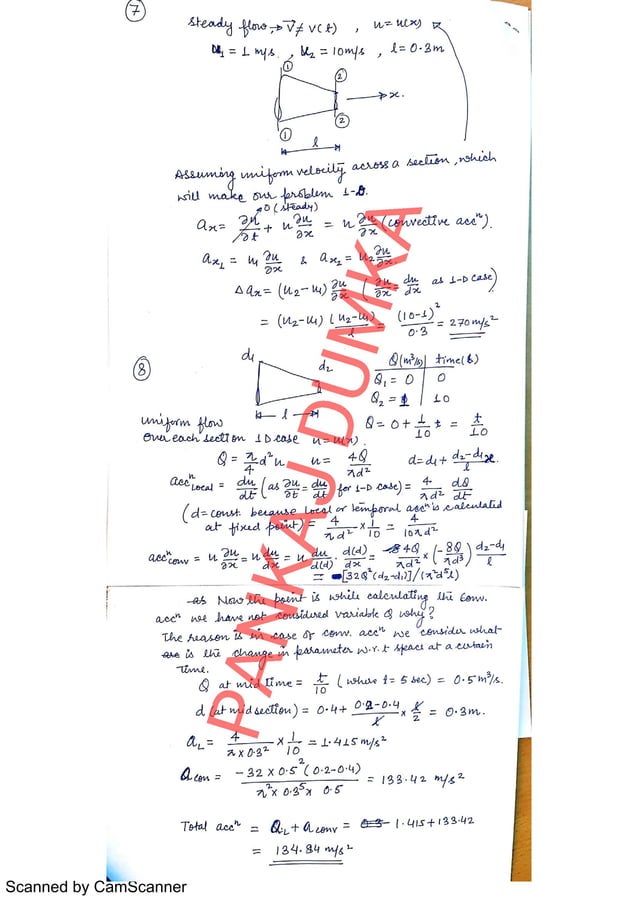 7
Steady flow, → V⃗ ≠ V(t) , u = u(x)
u₁ = 1 m/s , u₂ = 10 m/s , l = 0.3m
1 2
→ x.
1 2
l
Assuming uniform velocity across a section, which
will make our problem 1-D.
0 (steady)
aₓ = ∂u/∂t + u ∂u/∂x = u ∂u/∂x (convective accⁿ).
aₓ₁ = u₁ ∂u/∂x & aₓ₂ = u₂ ∂u/∂x.
Δaₓ = (u₂-u₁) ∂u/∂x (∂u/∂x = du/dx as 1-D case)
= (u₂-u₁) (u₂-u₁)/l = (10-1)²/0.3 = 270 m/s²
8
d₁ d₂
l
Q(m³/s) | time(s)
Q₁ = 0 | 0
Q₂ = 1 | 10
uniform flow
Q = 0 + 1/10 t = t/10
over each section 1D case u = u(x).
Q = π/4 d² u u = 4Q/πd² d = d₁ + (d₂-d₁)/l x
accⁿ Local = du/dt (as ∂u/∂t = du/dt for 1-D case) = 4/πd² dQ/dt
(d = const. because local or temporal accⁿ is calculated
at fixed point) = 4/πd² × 1/10 = 4/10πd²
accⁿ conv = u ∂u/∂x = u du/dx = u du/d(d) · d(d)/dx = 4Q/πd² × (-8Q/πd³) (d₂-d₁)/l
= -[32Q²(d₂-d₁)]/(π²d⁵l)
as Now the point is while calculating the conv.
accⁿ we have not considered variable Q why?
The reason is in case of conv. accⁿ we consider what
are is the change in parameter w.r.t space at a certain
time.
Q at mid time = t/10 (where t = 5 sec) = 0.5 m³/s.
d (at mid section) = 0.4 + (0.2-0.4)/l × l/2 = 0.3m.
a_L = 4/(π×0.3²) × 1/10 = 1.415 m/s²
a con = -32 × 0.5² (0.2-0.4)/(π² × 0.3⁵ × 0.5) = 133.42 m/s²
Total accⁿ = a_L + a conv = 0.3 1.415 + 133.42
= 134.84 m/s²
PANKAJ DUMKA
Scanned by CamScanner